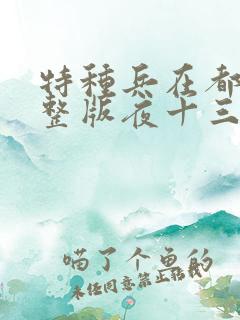 特種兵在都
整版夜十三
喵了个鱼的
未任同意禁止转载